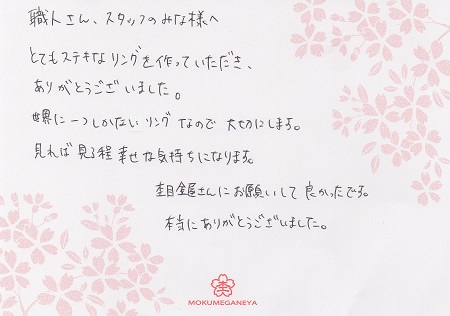 職人さん、スタッフのみな様へ
とてもステキなリングを作っていただき、
ありがとうございました。
世界に一つしかないリングなので大切にします。
見れば見る程幸せな気持ちになります。
杢目金屋さんにお願いして良かったです。
本当にありがとうございました。
杢
MOKUMEGANEYA